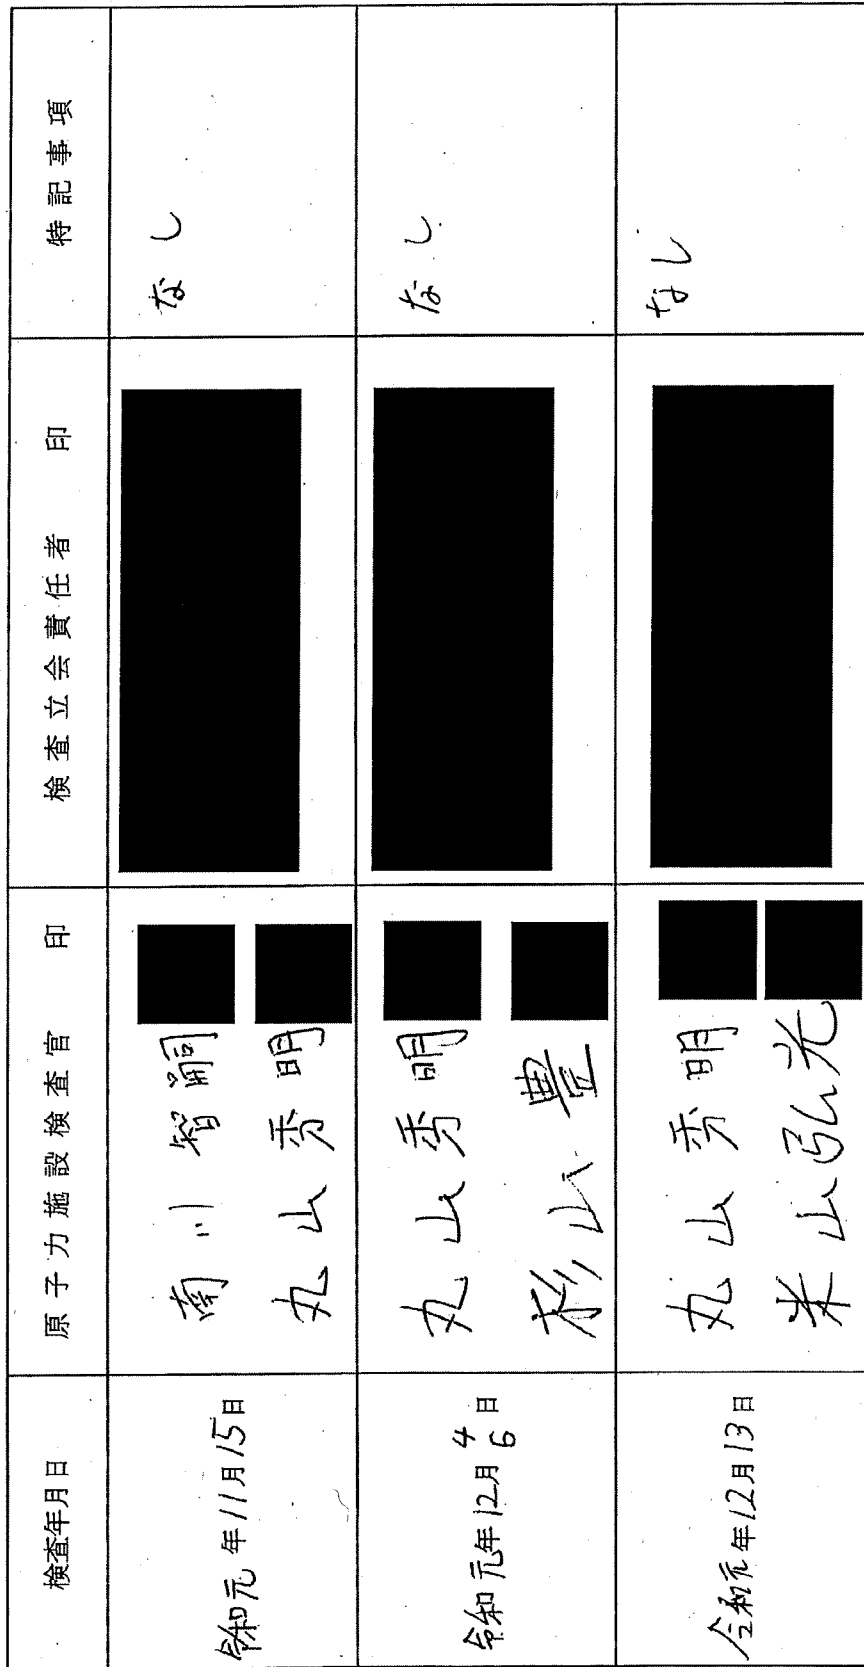 検査年月日 原子力施設検査官 印 検査立会責任者 印 特記事項
令和元年11月15日 南川智嗣 なし
丸山秀明
令和元年12月4日 丸山秀明 なし
6 杉山豊
令和元年12月13日 丸山秀明 なし
米山弘光